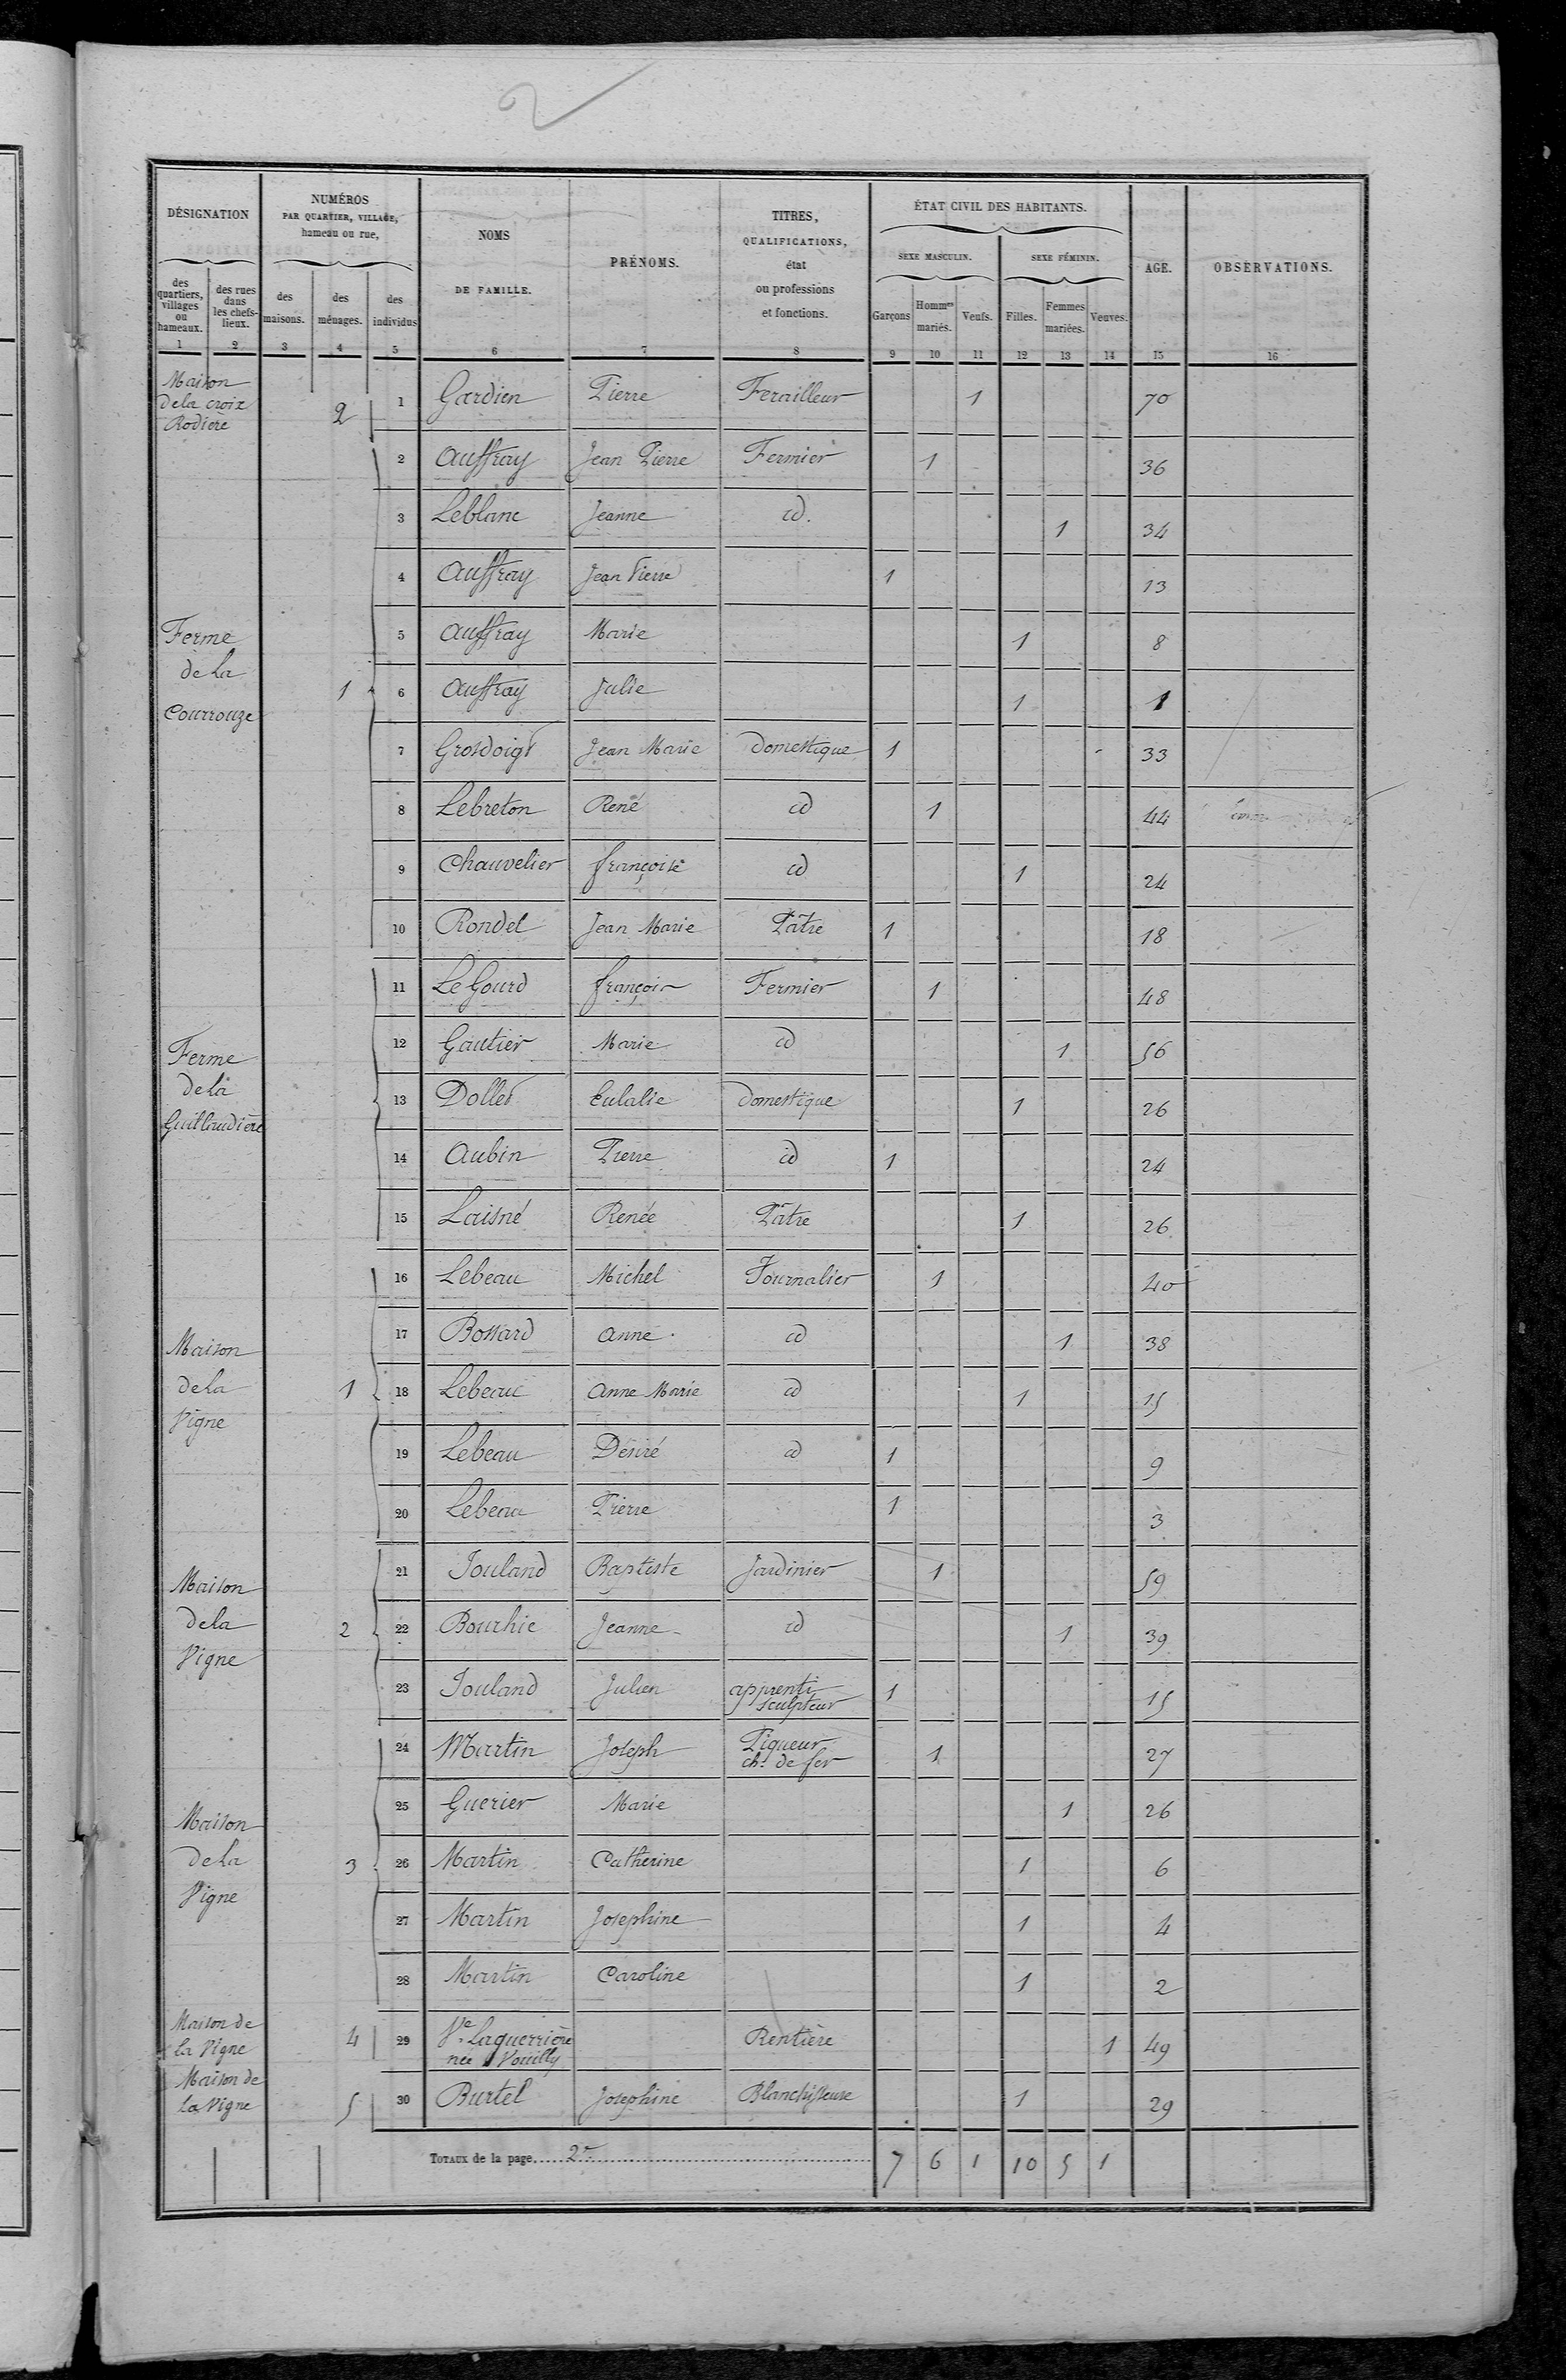 2
DÉSIGNATION
NUMÉROS
PAR QUARTIER, VILLAGE,
hameau ou rue,
NOMS
DE FAMILLE.
PRÉNOMS.
TITRES,
QUALIFICATIONS,
état
ou professions
et fonctions.
ÉTAT CIVIL DES HABITANTS.
SEXE MASCULIN.
SEXE FÉMININ.
AGE.
OBSERVATIONS.
des quartiers, villages ou hameaux.
des rues dans les chefs-lieux.
des maisons.
des ménages.
des individus
Garçons
Hommes mariés.
Veufs.
Filles.
Femmes mariées.
Veuves.
1 2 3 4 5 6 7 8 9 10 11 12 13 14 15 16
Maison
de la croix
Rodière
2 1 Gardien Pierre Ferailleur 1 70
2 Auffray Jean Pierre Fermier 1 36
3 Leblanc Jeanne id. 1 34
4 Auffray Jean Pierre 1 13
Ferme
de la
Courrouze
5 Auffray Marie 1 8
1 6 Auffray Julie 1 1
7 Grosdoigt Jean Marie domestique 1 33
8 Lebreton René id 1 44
9 Chauvelier françoise id 1 24
10 Rondel Jean Marie Pâtre 1 18
11 Le Gourd françois Fermier 1 48
Ferme
de la
Guillaudière
12 Gautier Marie id 1 56
13 Dollet Eulalie domestique 1 26
14 Aubin Pierre id 1 24
15 Laisné Renée Pâtre 1 26
16 Lebeau Michel Journalier 1 40
Maison
de la
Vigne
17 Bossard anne id 1 38
1 18 Lebeau anne Marie id 1 15
19 Lebeau Désiré id 1 9
20 Lebeau Pierre 1 3
Maison
de la
Vigne
21 Jouland Baptiste Jardinier 1 59
2 22 Bourhic Jeanne id 1 39
23 Jouland Julien apprenti
sculpteur 1 15
24 Martin Joseph Piqueur
ch. de fer 1 27
Maison
de la
Vigne
25 Guerier Marie 1 26
3 26 Martin Catherine 1 6
27 Martin Josephine 1 4
28 Martin Caroline 1 2
Maison de
la Vigne
4 29 Ve Laguerrière
née Vouilly Rentière 1 49
Maison de
la Vigne
5 30 Burtel Josephine Blanchisseuse 1 29
TOTAUX de la page 2e 7 6 1 10 5 1